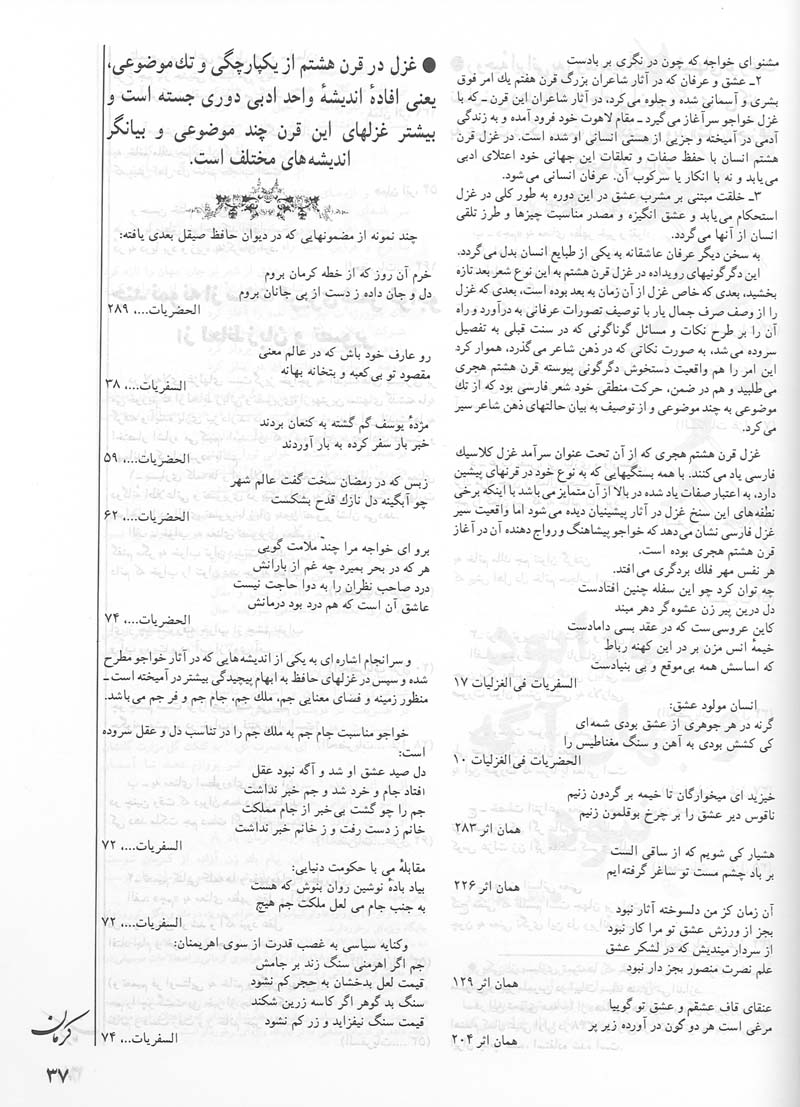 مشنو ای خواجه که چون در نگری بر بادست
۲ـ عشق و عرفان که در آثار شاعران بزرگ قرن هفتم یك امر فوق
بشری و آسمانی شده و جلوه می‌کرد، در آثار شاعران این قرن ـ که با
غزل خواجو سرآغاز می‌گیرد ـ مقام لاهوت خود فرود آمده و به زندگی
آدمی در آمیخته و جزیی از هستی انسانی او شده است. در غزل قرن
هشتم انسان با حفظ صفات و تعلقات این جهانی خود اعتلای ادبی
می‌یابد و نه با انکار یا سرکوب آن. عرفان انسانی می‌شود.
۳ـ خلقت مبتنی بر مشرب عشق در این دوره به طور کلی در غزل
استحکام می‌یابد و عشق انگیزه و مصدر مناسبت چیزها و طرز تلقی
انسان از آنها می‌گردد.
به سخن دیگر عرفان عاشقانه به یکی از طبایع انسان بدل می‌گردد.
این دگرگونیهای رویداده در غزل قرن هشتم به این نوع شعر بعد تازه
بخشید، بعدی که خاص غزل از آن زمان به بعد بوده است، بعدی که غزل
را از وصف صرف جمال یار با توصیف تصورات عرفانی به درآورد و راه
آن را بر طرح نکات و مسائل گوناگونی که در سنت قبلی به تفصیل
سروده می‌شد، به صورت نکاتی که در ذهن شاعر می‌گذرد، هموار کرد
این امر را هم واقعیت دستخوش دگرگونی پیوسته قرن هشتم هجری
می‌طلبید و هم در ضمن، حرکت منطقی خود شعر فارسی بود که از تك
موضوعی به چند موضوعی و از توصیف به بیان حالتهای ذهن شاعر سیر
می‌کرد.
غزل قرن هشتم هجری که از آن تحت عنوان سرآمد غزل کلاسیك
فارسی یاد می‌کنند. با همه بستگیهایی که به نوع خود در قرنهای پیشین
دارد، به اعتبار صفات یاد شده در بالا از آن متمایز می‌باشد با اینکه برخی
نطفه‌های این سنخ غزل در آثار پیشینیان دیده می‌شود اما واقعیت سیر
غزل فارسی نشان می‌دهد که خواجو پیشاهنگ و رواج دهنده آن در آغاز
قرن هشتم هجری بوده است.
هر نفس مهر فلك بردگری می‌افتد.
چه توان کرد چو این سفله چنین افتادست
دل درین پیر زن عشوه گر دهر مبند
کاین عروسی‌ست که در عقد بسی دامادست
خیمهٔ انس مزن بر در این کهنه رباط
که اساسش همه بی‌موقع و بی بنیادست
السفریات فی‌الغزلیات ۱۷
انسان مولود عشق:
گرنه در هر جوهری از عشق بودی شمه‌ای
کی کشش بودی به آهن و سنگ مغناطیس را
الحضریات فی‌الغزلیات ۱۰
خیزید ای میخوارگان تا خیمه بر گردون زنیم
ناقوس دیر عشق را بر چرخ بوقلمون زنیم
همان اثر ۲۸۳
هشیار کی شویم که از ساقی الست
بر باد چشم مست تو ساغر گرفته‌ایم
همان اثر ۲۲۶
آن زمان کز من دلسوخته آثار نبود
بجز از ورزش عشق تو مرا کار نبود
از سردار میندیش که در لشکر عشق
علم نصرت منصور بجز دار نبود
همان اثر ۱۲۹
عنقای قاف عشقم و عشق تو گوییا
مرغی است هر دو کون در آورده زیر پر
همان اثر ۲۰۴
● غزل در قرن هشتم از یکپارچگی و تك‌موضوعی،
یعنی افادهٔ اندیشهٔ واحد ادبی دوری جسته است و
بیشتر غزلهای این قرن چند موضوعی و بیانگر
اندیشه‌های مختلف است.
چند نمونه از مضمونهایی که در دیوان حافظ صیقل بعدی یافته:
خرم آن روز که از خطه کرمان بروم
دل و جان داده ز دست از پی جانان بروم
الحضریات...، ۲۸۹
رو عارف خود باش که در عالم معنی
مقصود تو بی‌کعبه و بتخانه بهانه
السفریات...، ۳۸
مژدهٔ یوسف گم گشته به کنعان بردند
خبر بار سفر کرده به بار آوردند
الحضریات...، ۵۹
زبس که در رمضان سخت گفت عالم شهر
چو آبگینه دل نازك قدح بشکست
الحضریات...، ۶۲
برو ای خواجه مرا چند ملامت گویی
هر که در بحر بمیرد چه غم از بارانش
درد صاحب نظران را به دوا حاجت نیست
عاشق آن است که هم درد بود درمانش
الحضریات...، ۷۴
و سرانجام اشاره ای به یکی از اندیشه‌هایی که در آثار خواجو مطرح
شده و سپس در غزلهای حافظ به ابهام پیچیدگی بیشتر در آمیخته است ـ
منظور زمینه و فضای معنایی جم، ملك جم، جام جم و فر جم می‌باشد.
خواجو مناسبت جام جم به ملك جم را در تناسب دل و عقل سروده
است:
دل صید عشق او شد و آگه نبود عقل
افتاد جام و خرد شد و جم خبر نداشت
جم را چو گشت بی‌خبر از جام مملکت
خاتم ز دست رفت و ز خاتم خبر نداشت
السفریات...، ۷۲
مقابلهٔ می با حکومت دنیایی:
بیاد بادهٔ نوشین روان بنوش که هست
به جنب جام می لعل ملکت جم هیچ
السفریات...، ۷۲
وکنایه سیاسی به غصب قدرت از سوی اهریمنان:
جم اگر اهرمنی سنگ زند بر جامش
قیمت لعل بدخشان به حجر کم نشود
سنگ بد گوهر اگر کاسه زرین شکند
قیمت سنگ نیفزاید و زر کم نشود
السفریات...، ۷۴
کرمان
۳۷